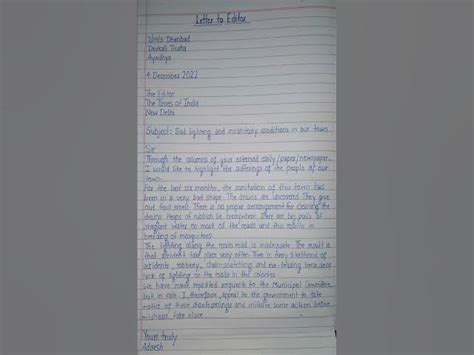 Letter to Editor
Devkali Tiraha
Ayodhya
4 December 2022
The Editor
The Times of India
New Delhi
Subject: Bad lighting and insanitary conditions in our town
Sir
Through the columns of your esteemed daily/paper/newspaper,
I would like to highlight the sufferings of the people of our
town.
For the last six months, the sanitation of this town has
been in a very bad shape. The drains are uncovered. They give
out foul smell. There is no proper arrangement for cleaning the
drains. Heaps of rubbish lie everywhere. There are big pools of
stagnant water on most of the roads and this results in
breeding of mosquitoes.
The lighting along the main road is inadequate. The result is
that accidents take place very often. There is every likelihood of
accidents, robbery, chain-snatching and eve-teasing because
lack of lighting on the roads in the colonies.
We have made repeated requests to the Municipal Committee,
but in vain. I, therefore, appeal to the government to take
notice of these shortcomings and initiate some action before
mishaps take place.
Yours truly
Adarsh